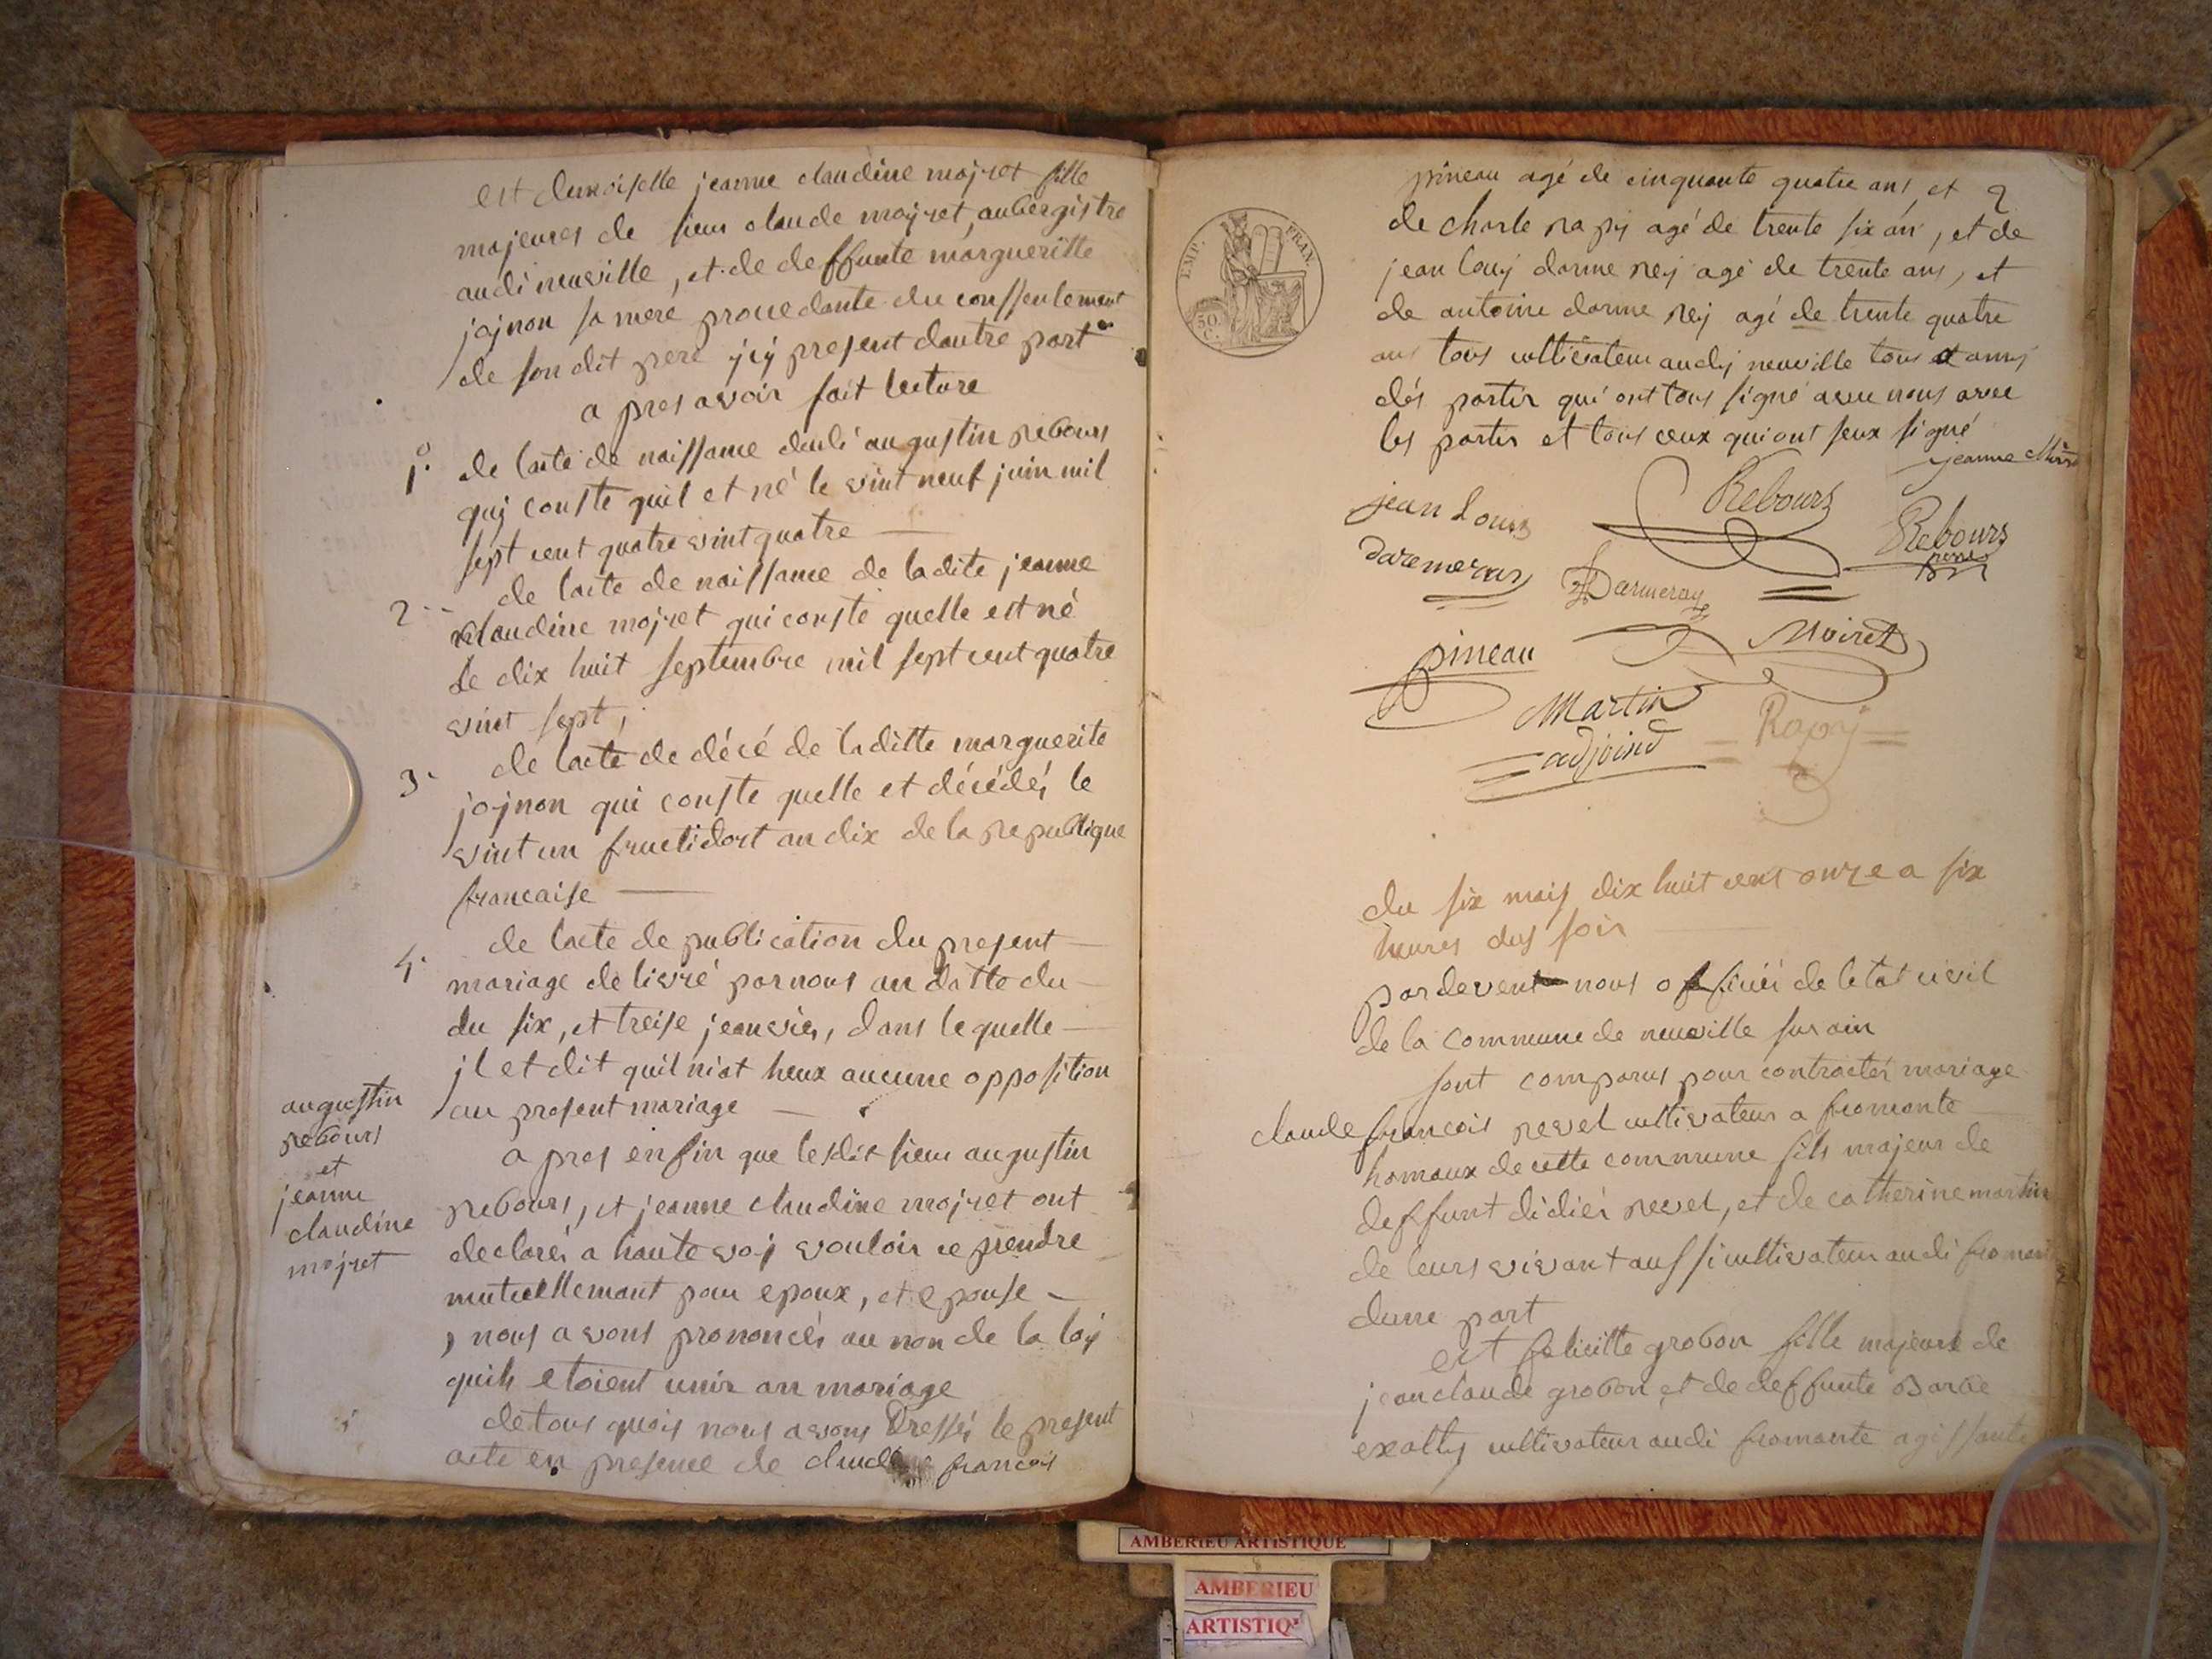 est demoiselle jeanne claudine mojret fille
majeures de sieur claude mojret, aubergistre
audi neuville, et de deffunte margueritte
jojnon sa mere procedante du consentement
de son dit pere jcj present dautre part
a pres avoir fait lecture
1° de lacte de naissance dudi augustin rebours
quj conste quil et né le vint neuf juin mil
sept cent quatre vint quatre
2 de lacte de naissance de ladite jeanne
claudine mojret qui conste quelle est né
le dix huit septembre mil sept cent quatre
vint sept,
3 de lacte de décé de laditte marguerite
jojnon qui conste quelle et décédés le
vint un fructidort an dix de la republique
francaise
4 de lacte de publication du present
mariage de livré par nous an datte du
du six, et treise jeanvier, dans le quelle
jl et dit quil niat heux aucune opposition
au present mariage
augustin
rebours
et
jeanne
claudine
mojret
a pres enfin que lesdit sieur augustin
rebours, et jeanne claudine mojret ont
declarés a haute voj vouloir ce prendre
mutuellemant pour epoux, et epouse
, nous avons prononcés au non de la loj
quils etoient unir an mariage
de tous quois nous avons Dressés le present
acte en presence de francois
pineau agé de cinquante quatre ans, et
de charle rapj agé de trente six an, et de
jean louj darme rej agé de trente ans, et
de antoine darme rej agé de trente quatre
ans tous cultivateur audj neuville tous amj
dés partir qui ont tous signé avec nous avec
les parter et tous ceux qui ont seux signé
EMP. FRAN.
50 C.
jeanne
jean Louis
Rebours
Rebours
Daremeray
Darmeray
pineau
Moiret
Martin
adjoind
Rapj
du six mais dix huit cent onze a six
heures dus soir
pardevent nous officiér de letat civil
de la commune de neuville sur ain
sont comparus pour contractér mariage
claude francois revel cultivateur a fromente
homaux de cette commune fils majeur de
deffunt didiér revel, et de catherine martin
de leurs vivant aussi cultivateur audi froment
dune part
est felicitte grobon fille majeure de
jean claude grobon, et de deffunte Barbe
exaltys cultivateur audi fromante agissante
AMBERIEU ARTISTIQUE
AMBERIEU
ARTISTIQ